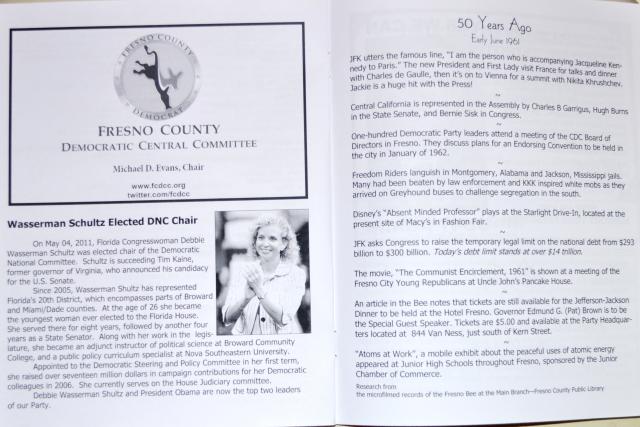 FRESNO COUNTY
DEMOCRAT
FRESNO COUNTY
DEMOCRATIC CENTRAL COMMITTEE
Michael D. Evans, Chair
www.fcdcc.org
twitter.com/fcdcc
Wasserman Schultz Elected DNC Chair
On May 04, 2011, Florida Congresswoman Debbie
Wasserman Schultz was elected chair of the Democratic
National Committee. Schultz is succeeding Tim Kaine,
former governor of Virginia, who announced his candidacy
for the U.S. Senate.
Since 2005, Wasserman Shultz has represented
Florida's 20th District, which encompasses parts of Broward
and Miami/Dade counties. At the age of 26 she became
the youngest woman ever elected to the Florida House.
She served there for eight years, followed by another four
years as a State Senator. Along with her work in the legis-
lature, she became an adjunct instructor of political science at Broward Community
College, and a public policy curriculum specialist at Nova Southeastern University.
Appointed to the Democratic Steering and Policy Committee in her first term,
she raised over seventeen million dollars in campaign contributions for her Democratic
colleagues in 2006. She currently serves on the House Judiciary committee.
Debbie Wasserman Shultz and President Obama are now the top two leaders
of our Party.
50 Years Ago
Early June 1961
JFK utters the famous line, "I am the person who is accompanying Jacqueline Ken-
nedy to Paris." The new President and First Lady visit France for talks and dinner
with Charles de Gaulle, then it's on to Vienna for a summit with Nikita Khrushchev.
Jackie is a huge hit with the Press!
~
Central California is represented in the Assembly by Charles B Garrigus, Hugh Burns
in the State Senate, and Bernie Sisk in Congress.
~
One-hundred Democratic Party leaders attend a meeting of the CDC Board of
Directors in Fresno. They discuss plans for an Endorsing Convention to be held in
the city in January of 1962.
~
Freedom Riders languish in Montgomery, Alabama and Jackson, Mississippi jails.
Many had been beaten by law enforcement and KKK inspired white mobs as they
arrived on Greyhound buses to challenge segregation in the south.
~
Disney's "Absent Minded Professor" plays at the Starlight Drive-In, located at the
present site of Macy's in Fashion Fair.
~
JFK asks Congress to raise the temporary legal limit on the national debt from $293
billion to $300 billion. Today's debt limit stands at over $14 trillion.
~
The movie, "The Communist Encirclement, 1961" is shown at a meeting of the
Fresno City Young Republicans at Uncle John's Pancake House.
~
An article in the Bee notes that tickets are still available for the Jefferson-Jackson
Dinner to be held at the Hotel Fresno. Governor Edmund G. (Pat) Brown is to be
the Special Guest Speaker. Tickets are $5.00 and available at the Party Headquar-
ters located at 844 Van Ness, just south of Kern Street.
~
"Atoms at Work", a mobile exhibit about the peaceful uses of atomic energy
appeared at Junior High Schools throughout Fresno, sponsored by the Junior
Chamber of Commerce.
Research from
the microfilmed records of the Fresno Bee at the Main Branch—Fresno County Public Library